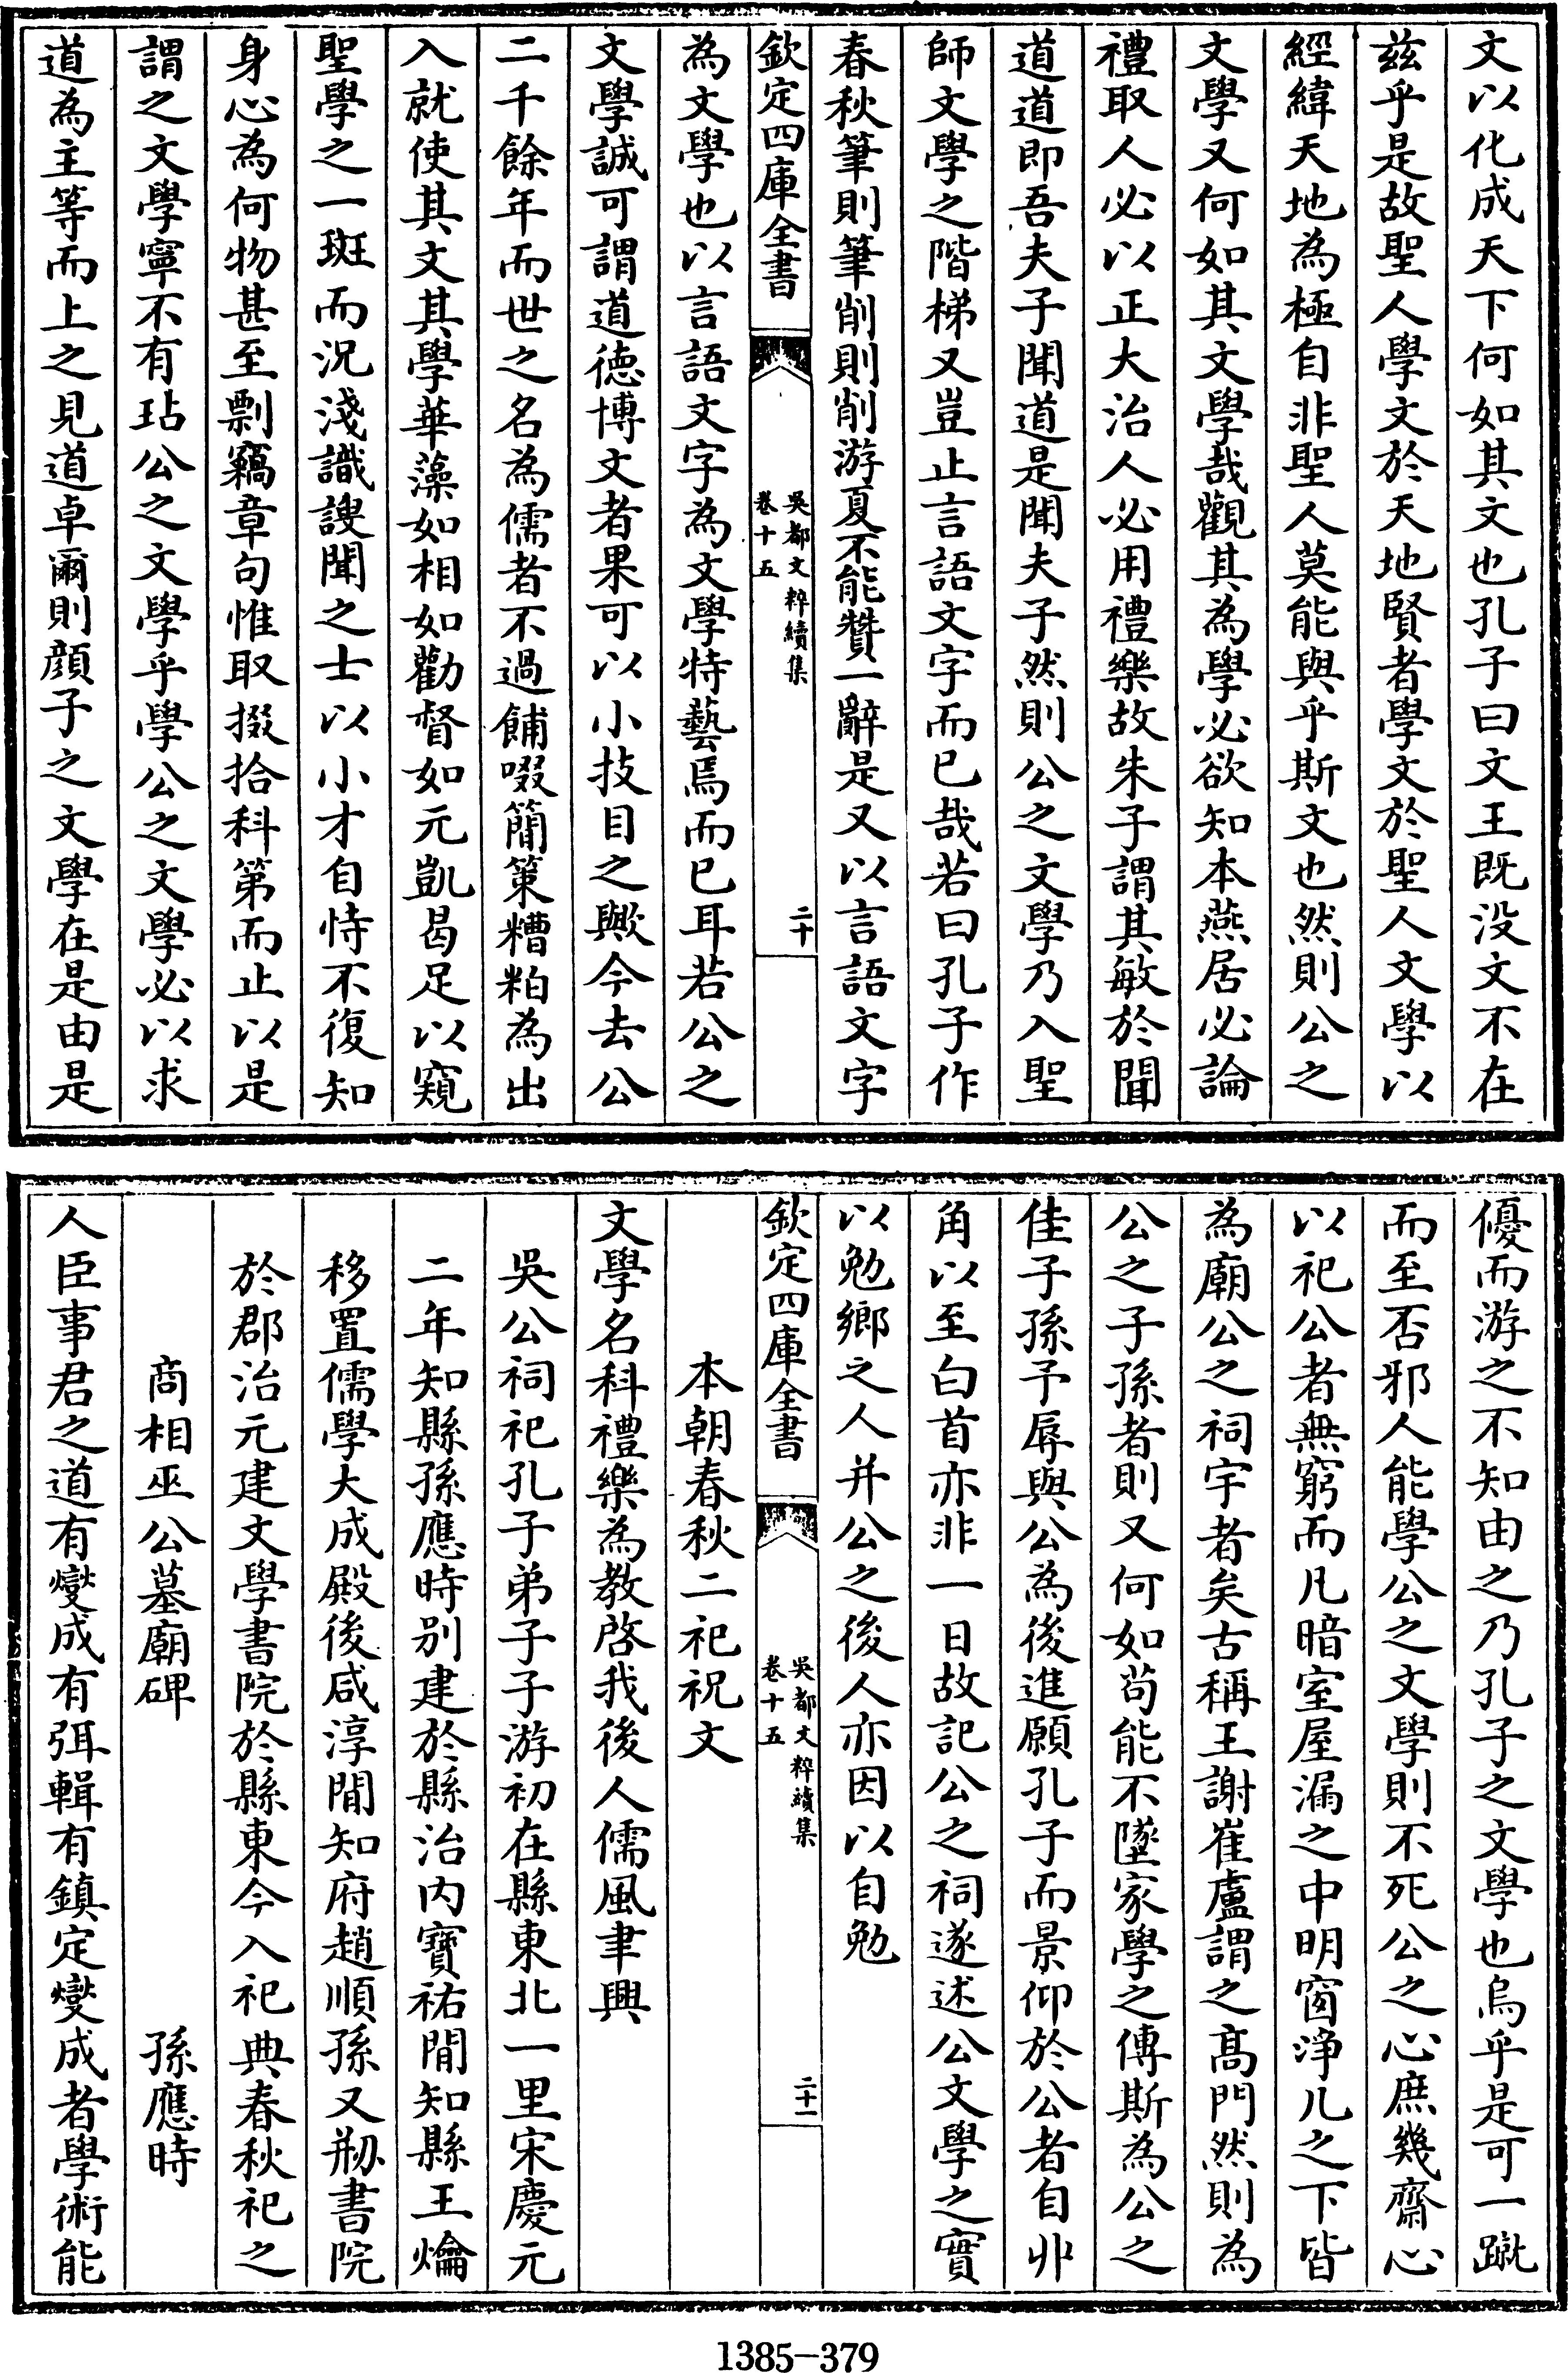 文以化成天下何如其文也孔子曰文王既没文不在
兹乎是故聖人學文於天地賢者學文於聖人文學以
經緯天地為極自非聖人莫能與乎斯文也然則公之
文學又何如其文學哉觀其為學必欲知本燕居必論
禮取人必以正大治人必用禮樂故朱子謂其敏於聞
道道即吾夫子聞道是聞夫子然則公之文學乃入聖
師文學之階梯又豈止言語文字而已哉若曰孔子作
春秋筆則筆削則削游夏不能贊一辭是又以言語文字
欽定四庫全書
吳都文粹續集
卷十五
二十
為文學也以言語文字為文學特藝焉而已耳若公之
文學誠可謂道德博文者果可以小技目之歟今去公
二千餘年而世之名為儒者不過餔啜簡策糟粕為出
入就使其文其學華藻如相如勸督如元凱曷足以窺
聖學之一斑而況淺識謏聞之士以小才自恃不復知
身心為何物甚至剽竊章句惟取掇拾科第而止以是
謂之文學寧不有玷公之文學乎學公之文學必以求
道為主等而上之見道卓爾則顔子之文學在是由是
優而游之不知由之乃孔子之文學也烏乎是可一蹴
而至否邪人能學公之文學則不死公之心庶幾齋心
以祀公者無窮而凡暗室屋漏之中明窗淨几之下皆
為廟公之祠宇者矣古稱王謝崔盧謂之髙門然則為
公之子孫者則又何如苟能不墜家學之傳斯為公之
佳子孫予辱與公為後進願孔子而景仰於公者自丱
角以至白首亦非一日故記公之祠遂述公文學之實
以勉鄉之人并公之後人亦因以自勉
欽定四庫全書
吳都文粹續集
卷十五
二十一
本朝春秋二祀祝文
文學名科禮樂為教啓我後人儒風聿興
吳公祠祀孔子弟子子游初在縣東北一里宋慶元
二年知縣孫應時别建於縣治内寶祐間知縣王爚
移置儒學大成殿後咸淳間知府趙順孫又剏書院
於郡治元建文學書院於縣東今入祀典春秋祀之
商相巫公墓廟碑 孫應時
人臣事君之道有燮成有弭輯有鎮定燮成者學術能
1385-379